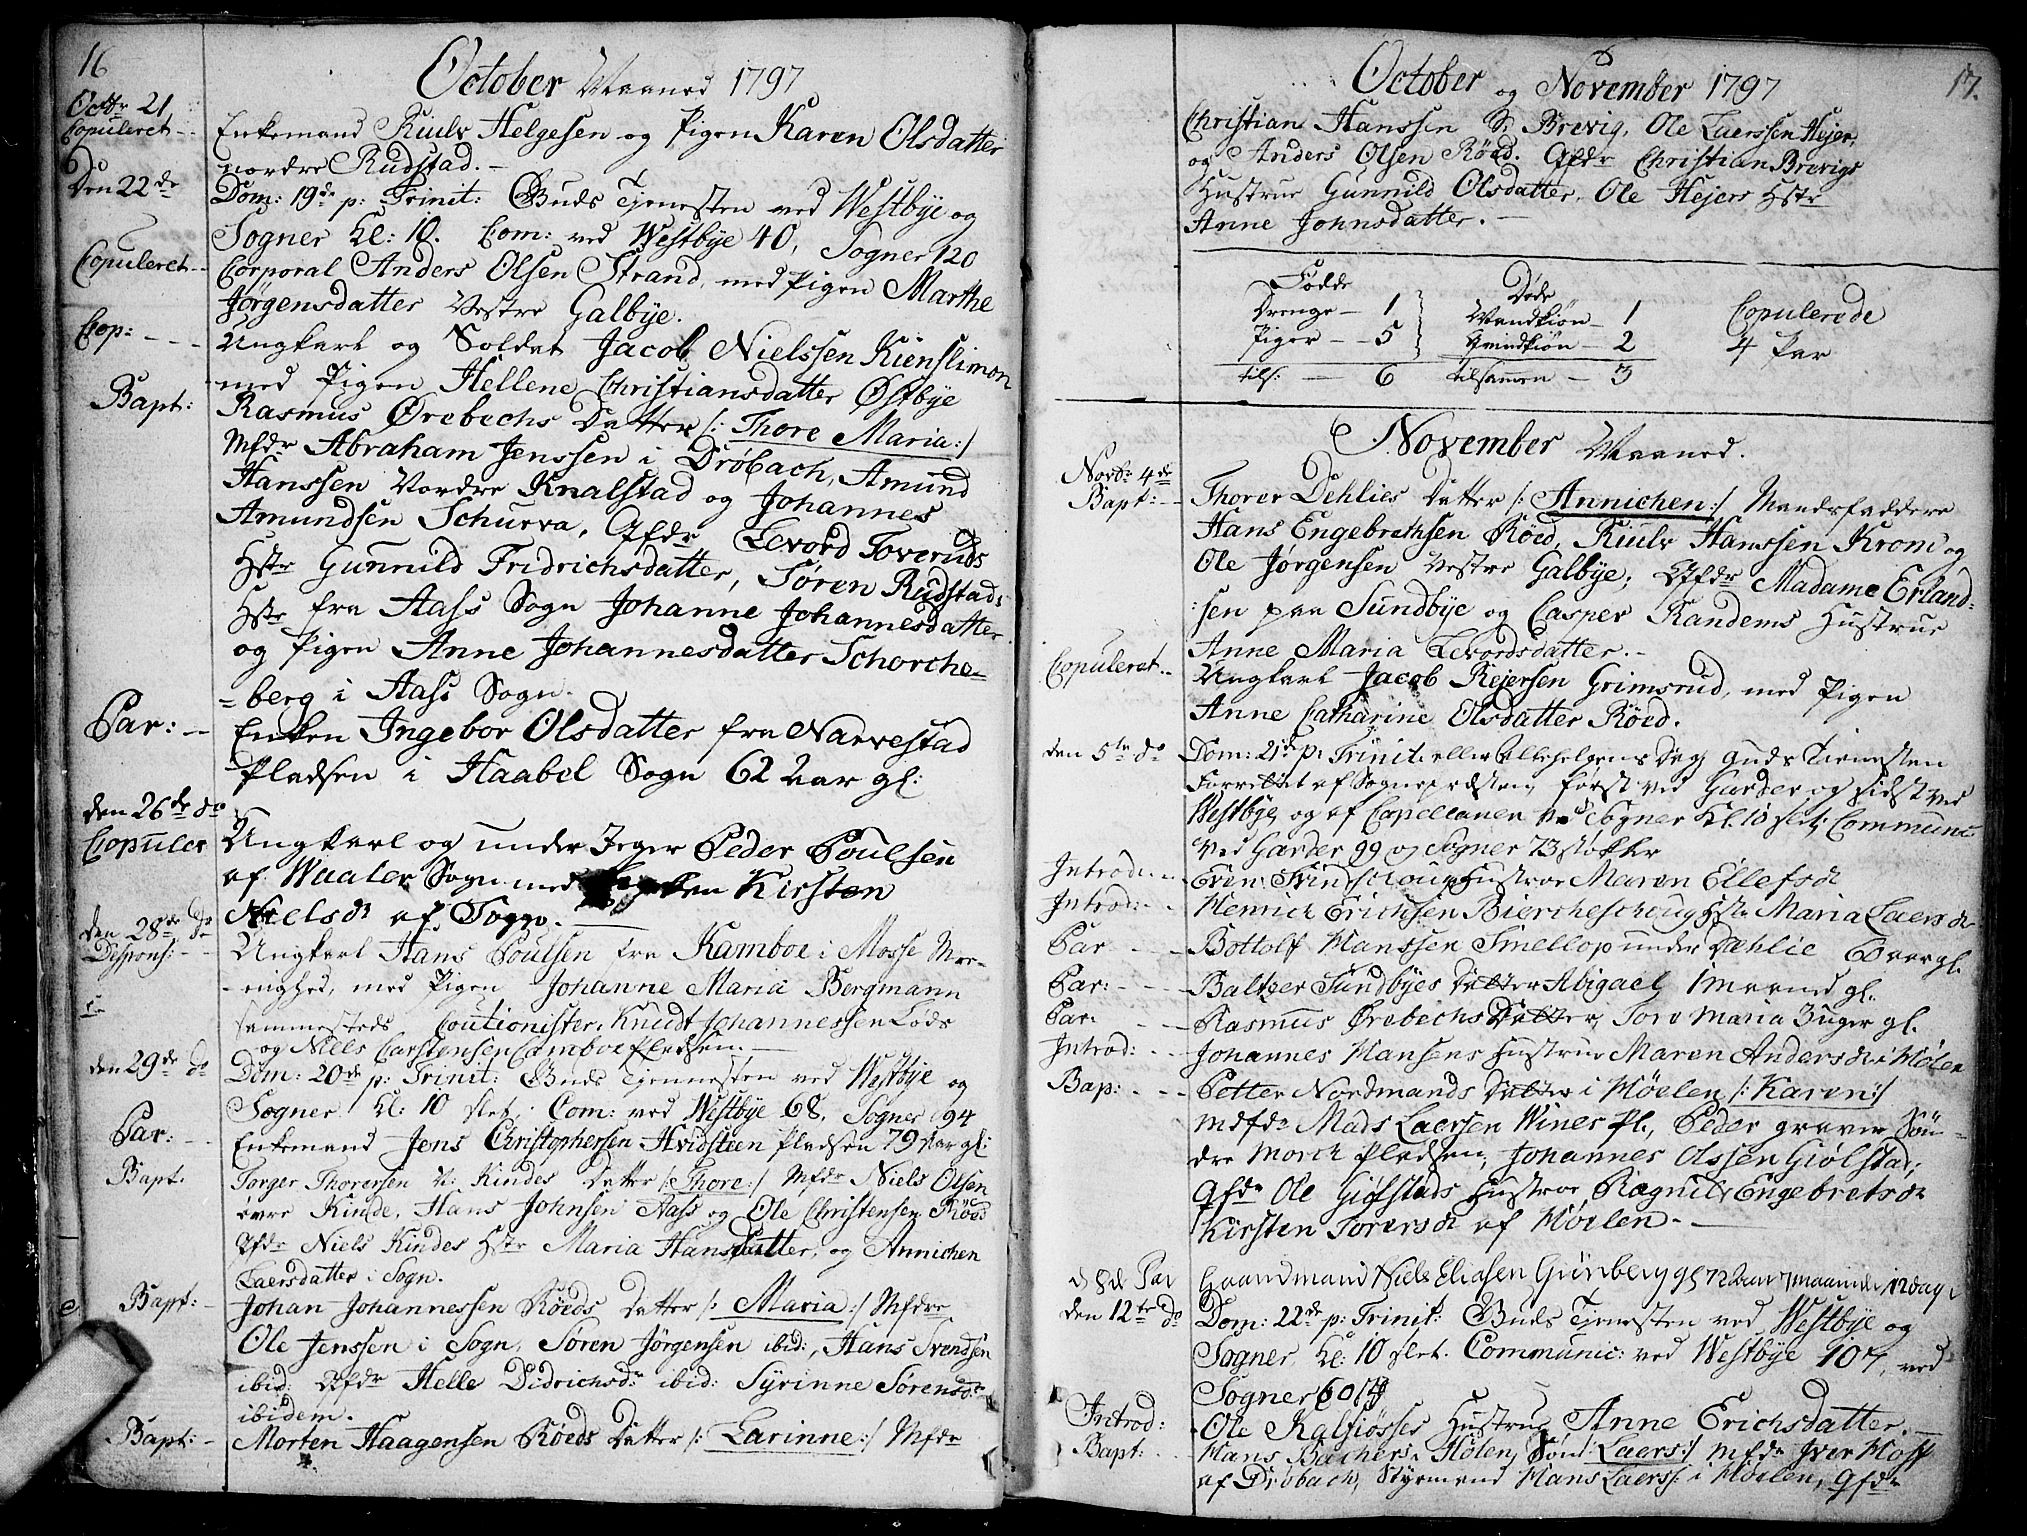 16
October Maaned 1797
Octbr 21
Copuleret -- Enkemand Kiulv Helgesen og Pigen Karen Olsdatter
nordre Rudstad. -
Den 22de Dom: 19de p: Trinit: Guds Tjenesten ved Westbye og
Sogner Kl: 10. Com: ved Westbye 40, Sogner 120
Copuleret -- Corporal Anders Olsen Strand, med Pigen Marthe
Jørgensdatter Vestre Galbye.
Cop: --- Ungkarl og Soldat Jacob Nielssen Kienslimon
med Pigen Hellene Christiansdatter Østbye
Bapt: Rasmus Ørebechs Datter /: Thore Maria :/
Mfdr Abraham Jenssen i Drøbach, Amund
Hanssen Nordre Knalstad og Johannes
Amundsen Schurva, Qfdr Levord Toveruds
Hstr Gunnild Fridrichsdatter, Søren Rudstads
Hstr fra Aass Sogn Johanne Johannesdatter
og Pigen Anne Johannesdatter Schorche-
-berg i Aass Sogn.
Par: -- Enken Ingebor Olsdatter fra Narvestad
Pladsen i Haabel Sogn 62 Aar gl:
den 26de do
Copuler Ungkarl og under Jeger Peder Poulsen
af Waaler Sogn med Kirsten
Nielsdr af Sogn. -
den 28de do
Despons: -- Ungkarl Hans Poulsen fra Kamboe i Mosse Me-
-nighed, med Pigen Johanne Maria Bergmann
sammesteds Coutionister, Knudt Johannessen Løds
og Niels Carstensen Camboe Pladsen. -
den 29de do Dom: 20de p: Trinit: Guds Tjennesten ved Westbye og
Sogner Kl: 10 slet, Com: ved Westbye 68, Sogner 94
Par: -- Enkemand Jens Christophersen Hvidsteen Pladsen 79 Aar gl:
Bapt. Torger Thorersen N: Kindes Datter /: Thore :/ Mfdr Niels Olsen
øvre Kinde, Hans Johnsen Aass og Ole Christensen Røed
Qfdr Niels Kindes Hstr Maria Hansdatter, og Annichen
Laersdatter i Sogn.
Bapt: - Johan Johannessen Røeds Datter /: Maria :/ Mfdre
Ole Jenssen i Sogn, Søren Jørgensen ibid:, Hans Svendsen
ibid: Qfdr Helle Didrichsdr ibid: Syrinne Sørensdr
ibidem.
Bapt: - Morten Haagensen Røeds Datter /: Larinne :/ Mfdr
17.
October og November 1797
Christian Hanssen S: Brevig, Ole Laerssen Hejer,
og Anders Olsen Røed. Qfdr Christian Brevigs
Hustrue Gunnild Olsdatter, Ole Hejers Hstr
Anne Johnsdatter. -
Fødde Døde
Drenge - 1 Mandkiøn - 1 Copulerede
Piger -- 5 Qvindkiøn - 2 4 Par
tils: -- 6 tilsammen - 3
November Maaned.
Novbr 4de
Bapt: -- Thorer Dehlies Datter /: Annichen :/ Mandsfaddere
Hans Engebrethsen Røed, Kiulv Hanssen Krom og
Ole Jørgensen Vestre Galbye; Qfdr Madame Erland-
:sen paa Sundbye og Casper Randems Hustrue
Anne Maria Levordsdatter. -
Copuleret -- Ungkarl Jacob Rejersen Grimsrud, med Pigen
Anne Catharine Olsdatter Røed.
den 5te do Dom: 21de p: Trinit. eller Allehelgens Dag Guds Tienesten
Forrettet af Sognepræsten, først ved Garder og sidst ved
Westbye, og af Capellanen ved Sogner Kl. 10 slet; Communic
ved Garder 99 og Sogner 73 støkker
Introd: -- Even Hustrue Maren Ellefsdr
Introd: -- Henrich Erichsen Biercheschoug Hstr Maria Laersdr
Par -- Bottolf Hanssen Smellop under Dæhlie 60 aar gl.
Par: --- Baltzer Sundbyes Datter Abigael, 1 maaned gl.
Par. -- Rasmus Ørebechs Datter, Tore Maria 3 uger gl.
Introd: -- Johannes Hansens Hustrue Maren Andersdr i Hølen
Bap: --- Petter Nordmands Datter i Høelen /: Karen :/
Mdfdr Mads Laersen Wines Pl, Peder graver Søn-
dre Morch Pladsen, Johannes Olssen Giølstad;
Qfdr Ole Giølstads Hustroe Ragnil Engebretsdr
Kirsten Torersdr af Høelen. -
d 8de Par Gaardmand Niels Eliasen Gunberg gl 72 Aar 7 maaneder 12 dag
den 12te do Dom: 22de p: Trinit: Guds Tjenesten ved Westbye og
Sogner, Kl: 10 slet. Communic: ved Westbye 107, ved
Sogner 60
Introd: Ole Kalsiøsses Hustrue Anne Erichsdatter. -
Bapt: -- Hans Bachers i Hølen, Søn /: Laers :/ Mfdr Iver Hoff
af Drøbach, Styrmand Hans Laers: i Høelen, Qfdr